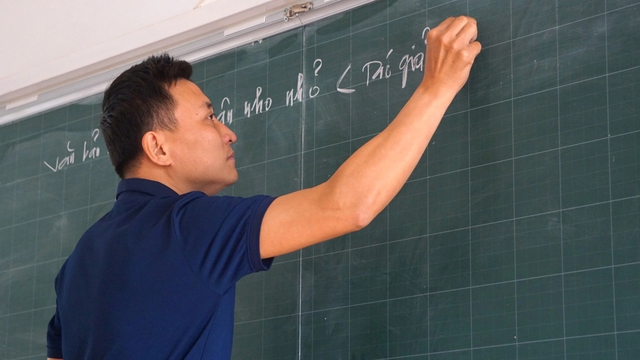 Văn bản ân nho nhỏ < Tác giả